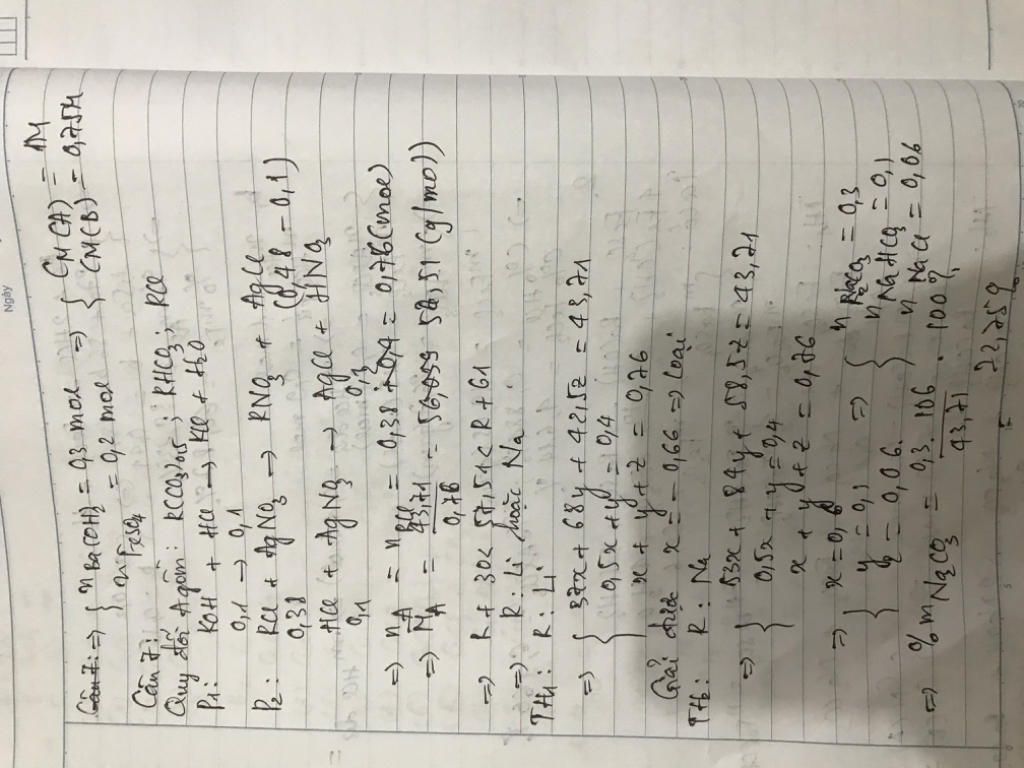 Ngày
Câu 7: => { n Ba(OH)2 = 0,3 mol => { CM(A) = 1M
n FeSO4 = 0,2 mol { CM(B) = 0,75M
Câu 7:
Quy đổi A gồm: R(CO3)0,5 ; RHCO3 ; RCl
P1: KOH + HCl -> KCl + H2O
0,1 -> 0,1
P2: RCl + AgNO3 -> RNO3 + AgCl
0,38 (0,48 - 0,1)
HCl + AgNO3 -> AgCl + HNO3
0,1 0,1
=> nA = nRCl = 0,38 + 0,4 = 0,76 (mol)
=> MA = 43,71 / 0,76 = 57,51 (g/mol)
=> R + 30 < 57,51 < R + 61
=> R: Li hoặc Na
TH1: R: Li
=> { 37x + 68y + 42,5z = 43,71
0,5x + y = 0,4
x + y + z = 0,76
Giải được x = - 0,66 => loại
TH2: R: Na
=> { 53x + 84y + 58,5z = 43,71
0,5x + y = 0,4
x + y + z = 0,76
=> { x = 0,6 => { n Na2CO3 = 0,3
y = 0,1 n NaHCO3 = 0,1
z = 0,06. n NaCl = 0,06
=> % m Na2CO3 = 0,3 . 106 / 43,71 . 100%
= 72,75%